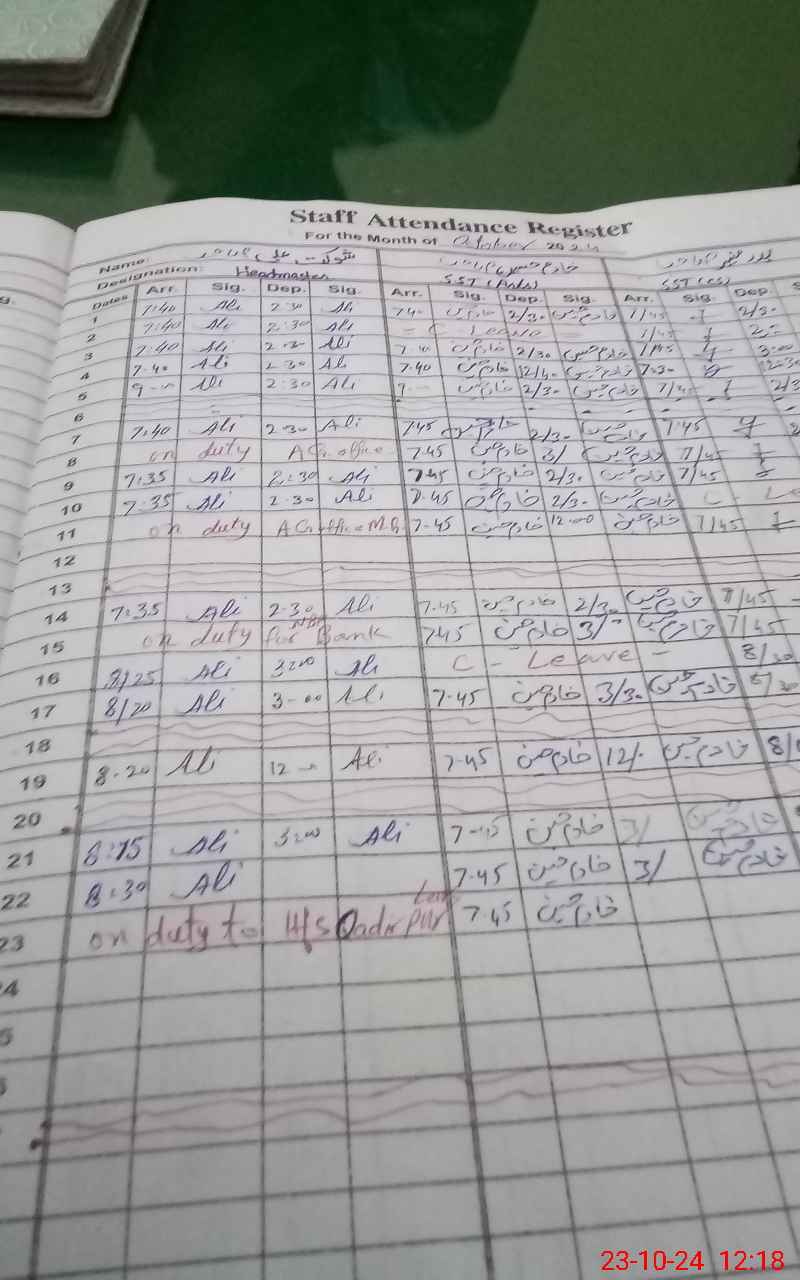 Staff Attendance Register
For the Month of October 2024
Name: شوکت علی
Designation: Headmaster SST (Arts) SST (CS)
Dates Arr. Sig. Dep. Sig. Arr. Sig. Dep. Sig. Arr. Sig. Dep
1 7:40 Ali 2:30 Ali 7:40 خادم حسین 2/30 خادم حسین 7/45 2/30
2 7:40 Ali 2:30 Ali C Leave 7/45
3 7:40 Ali 2:30 Ali 7:40 خادم حسین 2/30 خادم حسین 7/45 3:00
4 7:40 Ali 2:30 Ali 7:40 خادم حسین 12/40 خادم حسین 7:30
5 9-00 Ali 2:30 Ali خادم حسین 2/30 خادم حسین 7/45 2/3
6
7 7:40 Ali 2:30 Ali 7:45 خادم حسین 2/30 خادم حسین 7:45
8 on duty AG office 7:45 خادم حسین 3/ خادم حسین 7/45
9 7:35 Ali 2:30 Ali 7:45 خادم حسین 2/30 خادم حسین 7/45
10 7:35 Ali 2:30 Ali 7:45 خادم حسین 2/30 خادم حسین C - Le
11 on duty AG office 7-45 خادم حسین 12:00 خادم حسین 7/45
12
13
14 7:35 Ali 2:30 Ali 7.45 خادم حسین 2/30 خادم حسین 7/45
15 on duty for Bank 7:45 خادم حسین 3/ خادم حسین 7/45
16 8/25 Ali 3:00 Ali C - Leave - 8/30
17 8/20 Ali 3-00 Ali 7-45 خادم حسین 3/30 خادم حسین 8/30
18
19 8-20 Ali 12 Ali 7-45 خادم حسین 12/. خادم حسین
20
21 8:15 Ali 3:00 Ali 7-45 خادم حسین 3/ خادم حسین
22 8:30 Ali 7.45 خادم حسین 3/ خادم حسین
23 on duty to H/S Qadir Pur 7.45 خادم حسین
4
5
23-10-24 12:18